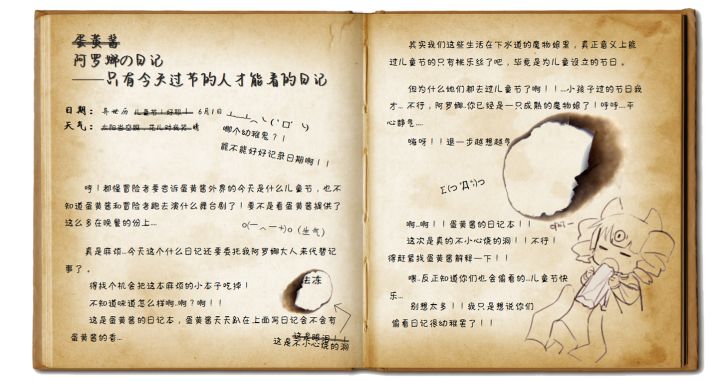 蛋黄酱
阿罗娜の日记
——只有今天过节的人才能看的日记
日期：异世历 儿童节！好耶！ 6月1日
天气：太阳当空照，花儿对我笑 晴
哪个幼稚鬼？！
能不能好好记录日期啊！！
哼！都怪冒险者要告诉蛋黄酱外界的今天是什么儿童节，也不
知道蛋黄酱和冒险者跑去演什么舞台剧了！要不是看蛋黄酱提供了
这么多在晚餐的份上...
o(一︿一+)o（生气）
真是麻烦...今天这个什么日记还要委托我阿罗娜大人来代替记
事了。
得找个机会把这本麻烦的小本子吃掉！
不知道味道怎么样啊..啊？啊！！
这是蛋黄酱的日记本，蛋黄酱天天趴在上面写日记会不会有
蛋黄酱的香...
法冻
这是眼泪！！
这是不小心烧的洞
其实我们这些生活在下水道的魔物娘里，真正意义上能
过儿童节的只有桃乐丝了吧，毕竟是为儿童设立的节日。
但为什么她们都去过儿童节了啊！！...小孩子过的节日我
才... 不行，阿罗娜..你已经是一只成熟的魔物娘了！呼呼...平
心静气....
嗨呀！！退一步越想越气
Σ(っ °Д °;)っ
啊..啊！！蛋黄酱的日记本！！
这次是真的不小心烧的洞！！不行！
得赶紧找蛋黄酱解释一下！！
喂..反正知道你们也会偷看的...儿童节快
乐...
别想太多！！我只是想说你们
偷看日记很幼稚罢了！！